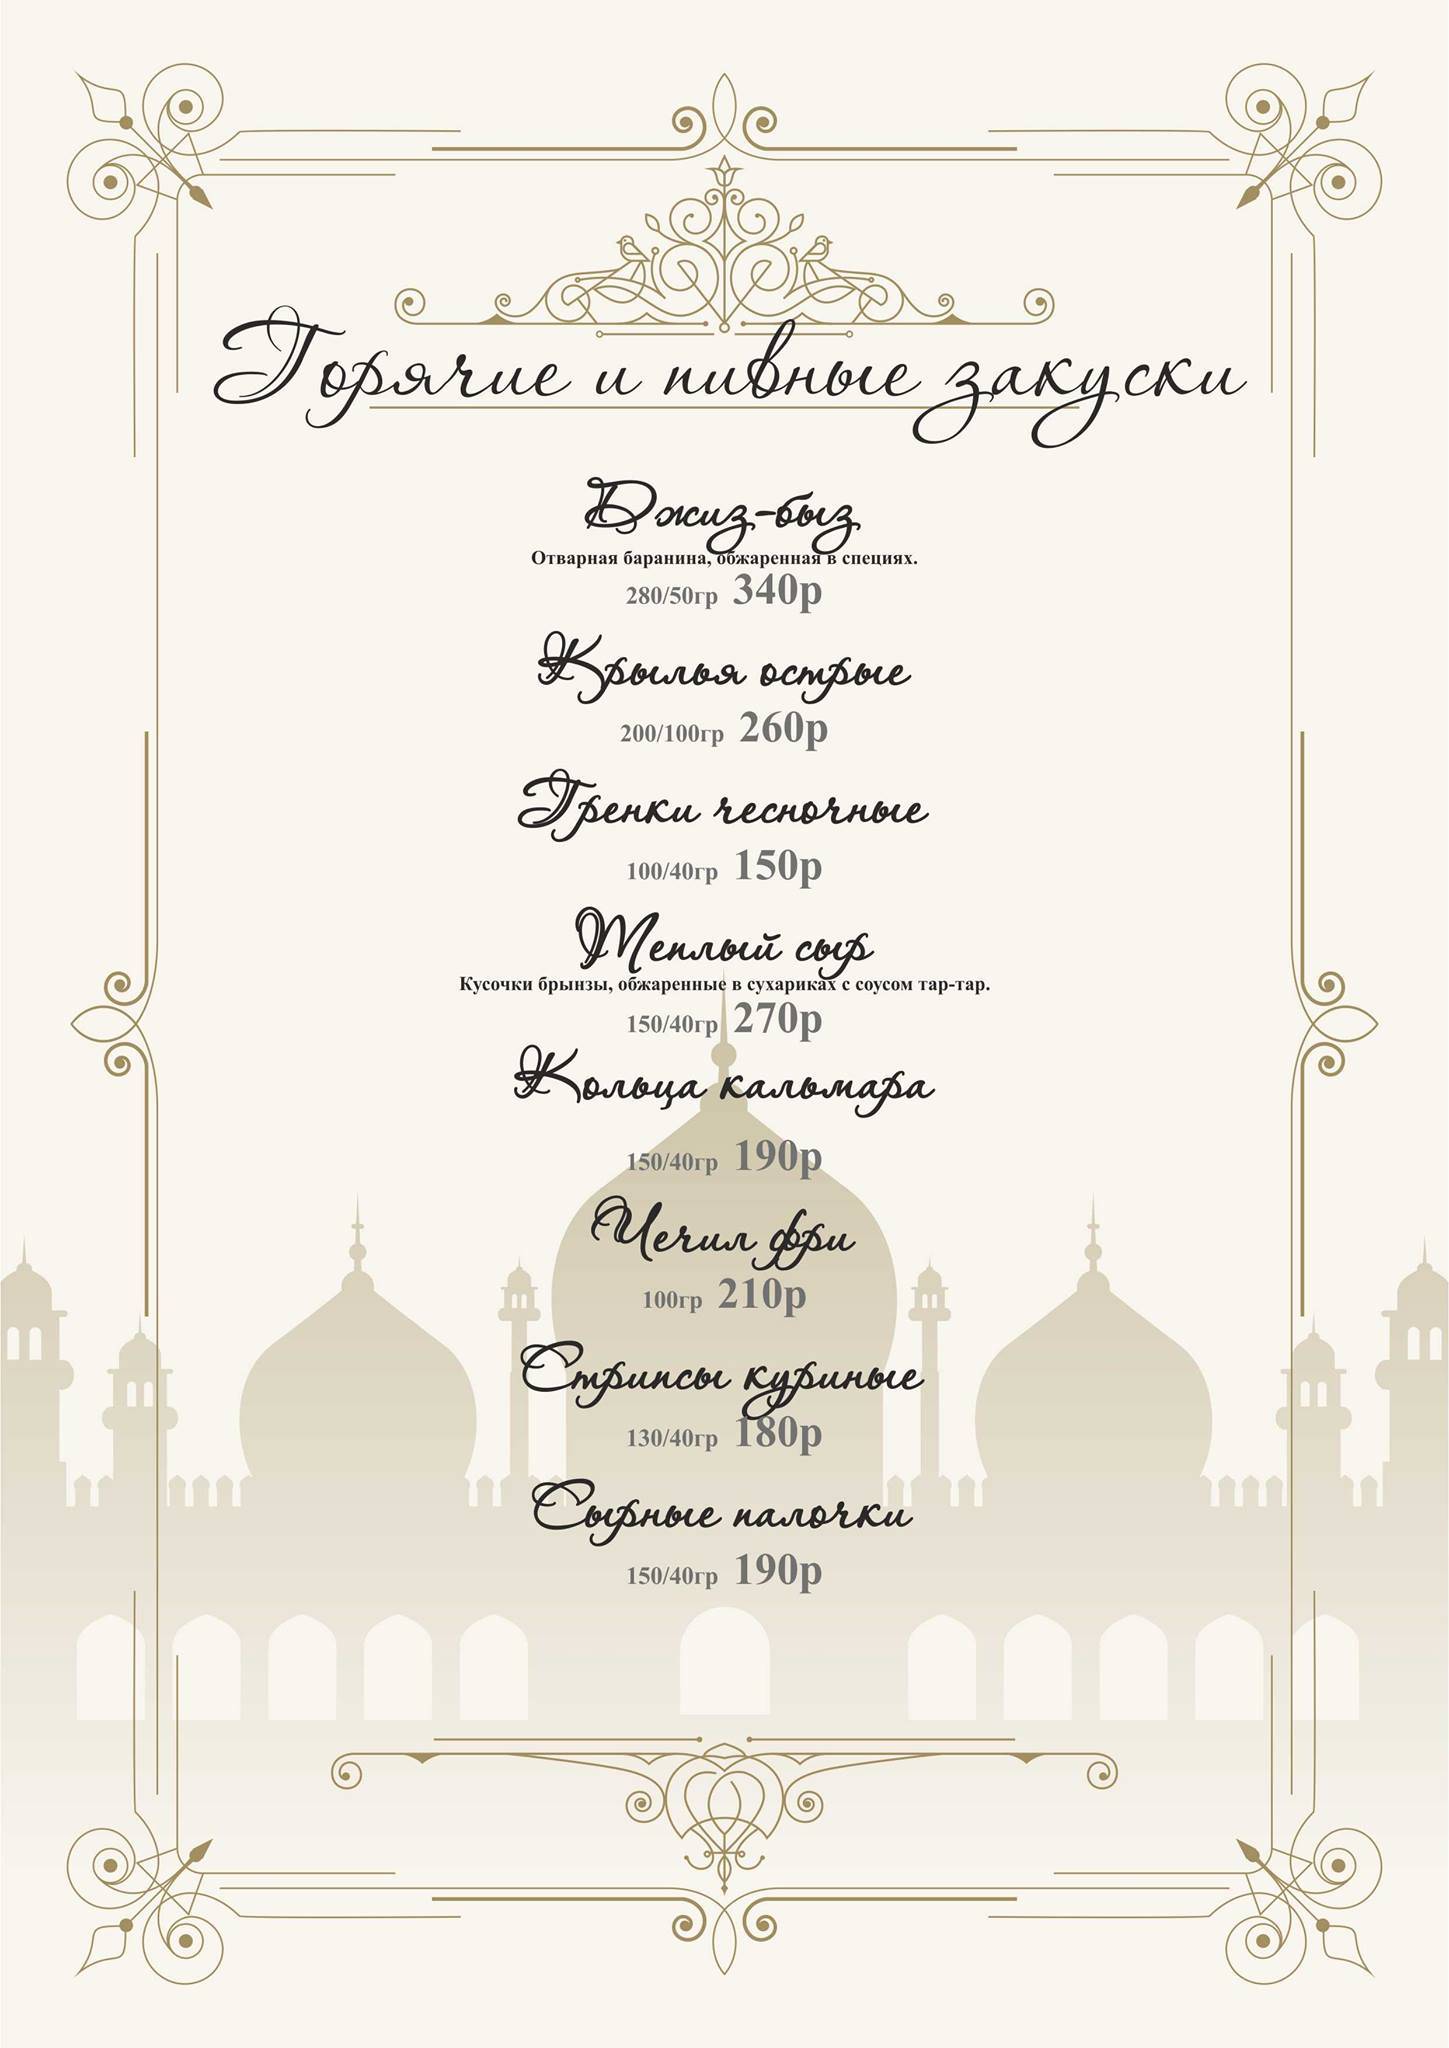 Горячие и пивные закуски
Джиз-быз
Отварная баранина, обжаренная в специях.
280/50гр 340р
Крылья острые
200/100гр 260р
Гренки чесночные
100/40гр 150р
Теплый сыр
Кусочки брынзы, обжаренные в сухариках с соусом тар-тар.
150/40гр 270р
Кольца кальмара
150/40гр 190р
Чечил фри
100гр 210р
Стрипсы куриные
130/40гр 180р
Сырные палочки
150/40гр 190р